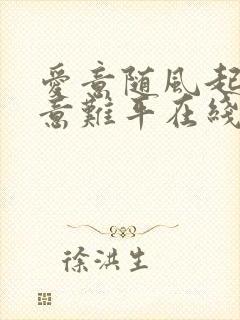 愛意随风起
意難平在綫
徐洪生